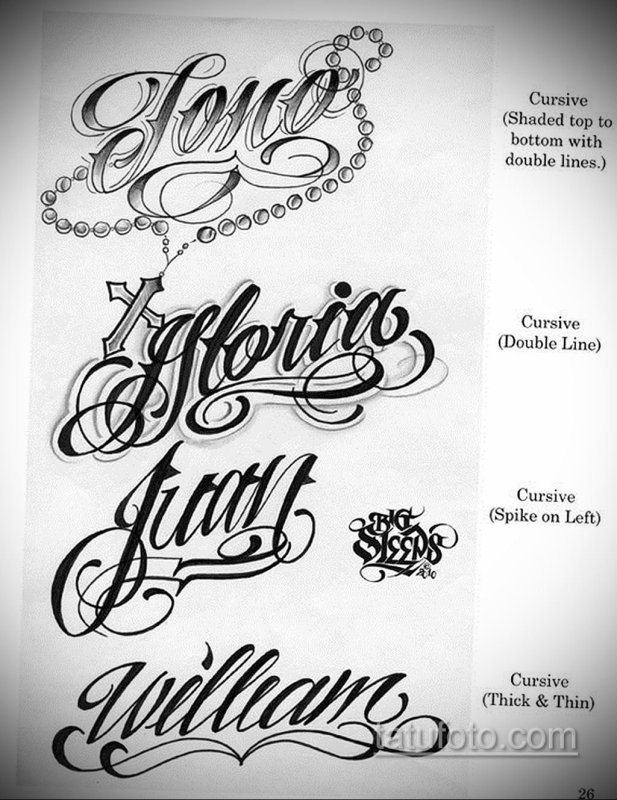 Cursive
(Shaded top to
bottom with
double lines.)
Gloria
Cursive
(Double Line)
Juan
Cursive
(Spike on Left)
BIG
SLEEPS
©
2010
William
Cursive
(Thick & Thin)
tatufoto.com
26